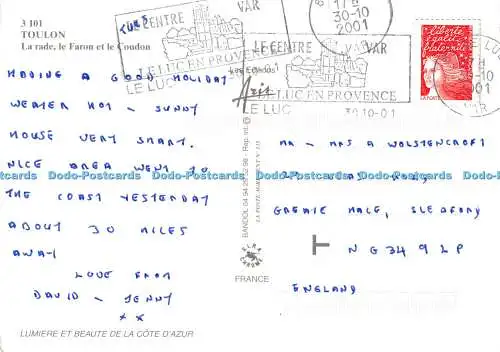 3 101
TOULON
La rade, le Faron et le Coudon
TUES
LE CENTRE VAR
LE LUC EN PROVENCE
LE LUC
17 H
30-10
2001
LE CENTRE VAR
LE LUC EN PROVENCE
LE LUC
30-10-01
liberté
égalité
fraternité
LA POSTE
HADING A GOOD HOLIDAY
WEATER HOT - SUNNY
HOUSE VERY SMART.
NICE AREA WENT TO
THE COAST YESTERDAY
ABOUT 30 MILES
AWAY
LOVE FROM
DAVID - JENNY
x x
LUMIERE ET BEAUTE DE LA CÔTE D'AZUR
Les Editions
Aris
BANDOL 04 94 29 52 98 - Rep. int.
FRANCE
MR - MRS A WOLSTENCROFT
ROAD,
GREAT HALE, SLEAFORD
T
NG34 9LP
ENGLAND
Dodo-Postcards Dodo-Postcards Dodo-Postcards Dodo-Postcards